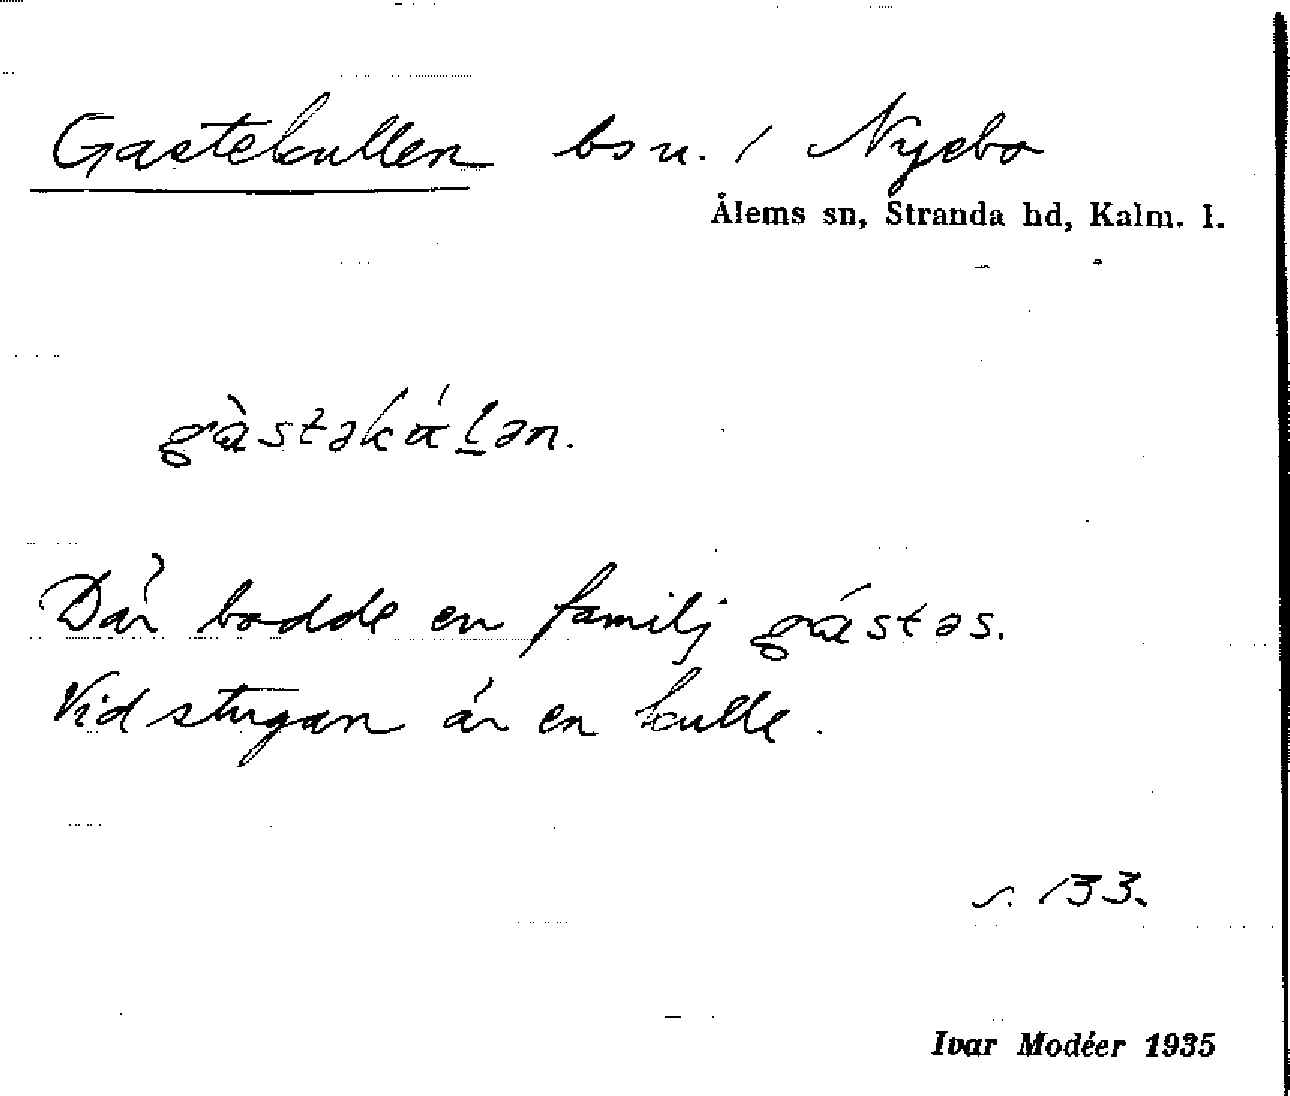 Gastekullen bsn. / Nyebo
Ålems sn, Stranda hd, Kalm. l.
gàstəkálən.
Där bodde en familj gástəs.
Vid stugan är en kulle.
s. 133.
Ivar Modéer 1935